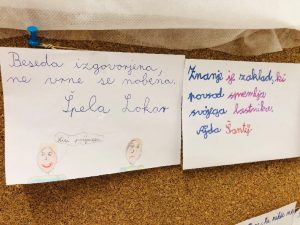 Beseda izgovorjena,
ne vrne se nobena.
Špela Lokar
Znanje je zaklad, ki
povsod spremlja
svojega lastnika.
Ajda Šantij